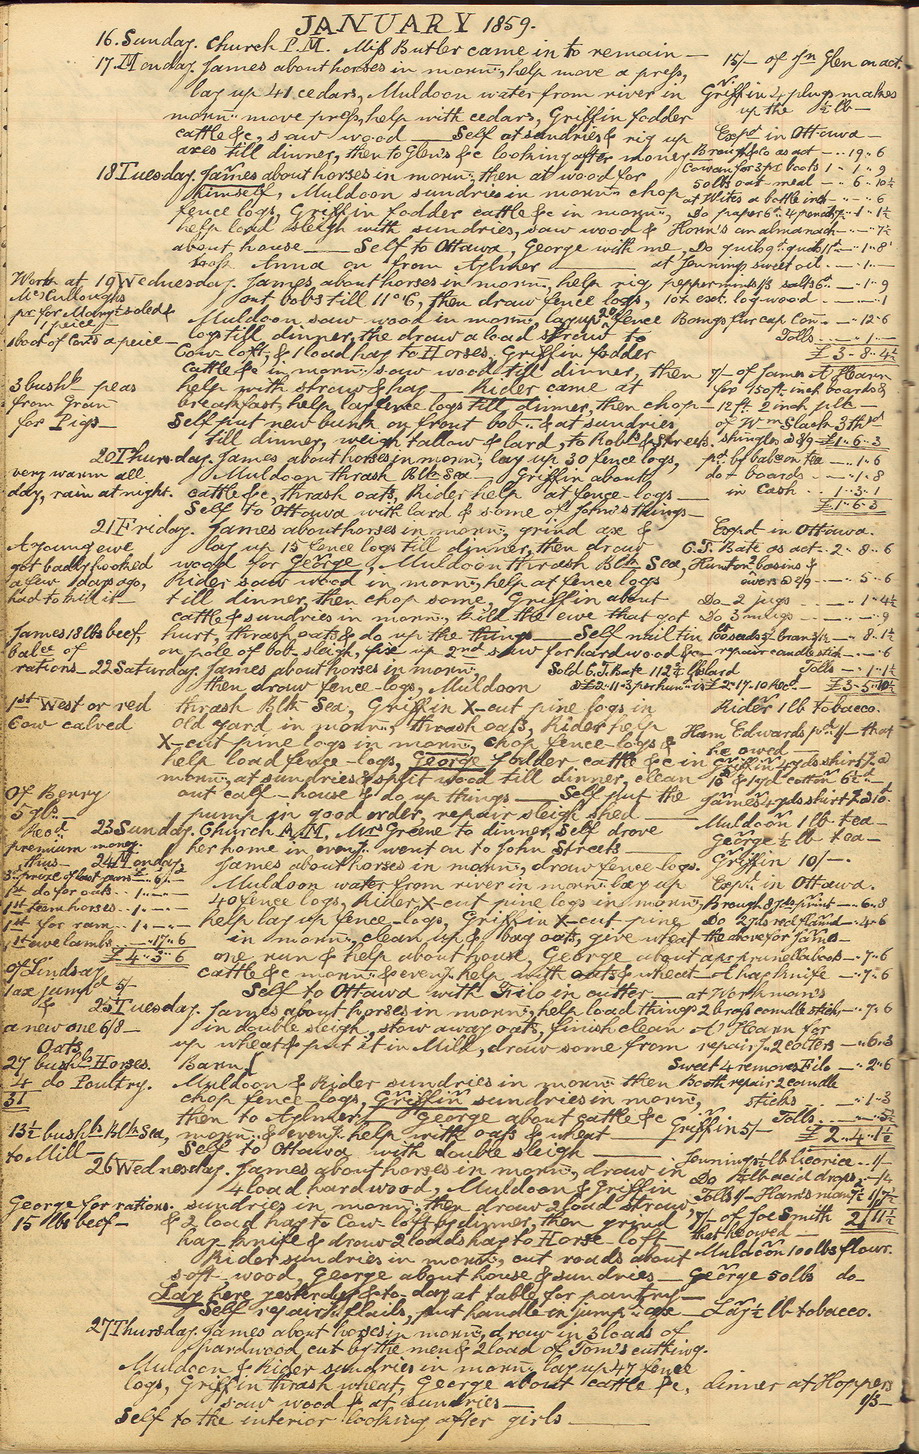 JANUARY 1859.
16. Sunday. Church P.M. Miſs Butler came in to remain —
17. Monday. James about horses in morn:, help move a preſs,
lay up 41 cedars, Muldoon water from river in
morn: move preſs, help with cedars, Griffin fodder
cattle &c, saw wood — Self at sundries & rig up
axes till dinner, then to Glen's &c looking after money
18 Tuesday. James about horses in morn: then at wood for
himself, Muldoon sundries in morn: chop
fence logs, Griffin fodder cattle &c in morn:,
help load sleigh with sundries, saw wood &
about house — Self to Ottawa, George with me,
Anna on from Aylmer
19 Wednesday. James about horses in morn:, help rig
out bobs till 11 o'C, then draw fence logs,
Muldoon saw wood in morn:, lay up 20 fence
logs till dinner, the draw a load straw to
Cow-loft, & 1 load hay to Horses, Griffin fodder
cattle &c in morn: saw wood till dinner, then
help with straw & hay — Rider came at
breakfast, help lay fence logs till dinner, then chop —
Self put new bunk on front bob & at sundries,
till dinner, weigh tallow & lard, to Robt & Streets.
20 Thursday. James about horses in morn:, lay up 30 fence logs,
Muldoon thrash Blk Sea — Griffin about
cattle &c, thrash oats, Rider help at fence-logs —
Self to Ottawa with lard & some of John's things —
21 Friday. James about horses in morn:, grind axe &
lay up 15 fence logs till dinner, then draw
wood for George, Muldoon thrash Blk Sea,
Rider saw wood in morn:, help at fence logs
till dinner, then chop some, Griffin about
cattle & sundries in morn:, kill the ewe that got
hurt, thrash oats & do up the things — Self nail tin
on pole of bob sleigh, fix up 2nd saw for hard wood &c —
22 Saturday. James about horses in morn:,
then draw fence-logs, Muldoon
thrash Blk Sea, Griffin X-cut pine logs in
old yard in morn:, thrash oats, Rider help
X-cut pine logs in morn:, chop fence-logs &
help load fence-logs, George fodder cattle &c in
morn:, at sundries & split wood till dinner, clean
out calf-house & do up things — Self put the
pump in good order, repair sleigh shed —
23 Sunday. Church A.M. Mr Greene to dinner, Self drove
her home in eveng. went on to John Streets —
24 Monday.
James about horses in morn:, draw fence-logs.
Muldoon water from river in morn: lay up
40 fence logs, Rider, X-cut pine logs in morn:,
help lay up fence-logs, Griffin X-cut pine
in morn:, clean up & bag oats, give wheat
one run & help about house, George about
cattle &c morn: & eveng. help with oats & wheat —
Self to Ottawa with Filo in cutter —
25 Tuesday. James about horses in morn:, help load things
in double sleigh, stow away oats, finish clean
up wheat & put it in Mill, draw some from
Barn,
Muldoon & Rider sundries in morn: then
chop fence-logs, Griffin sundries in morn:,
then to Aylmer, George about cattle &c
morn: & eveng. help with oats & wheat —
Self to Ottawa with double sleigh —
26 Wednesday. James about horses in morn:, draw in
4 load hard wood, Muldoon & Griffin
sundries in morn:, then draw 2 load straw,
& 2 load hay to Cow-loft by dinner, then grind
hay knife & draw 2 loads hay to Horse-loft —
Rider sundries in morn:, cut roads about
soft-wood, George about house & sundries —
Lay here yesterday & to-day at table for pantry —
Self repair flails, put handle in jump: axe —
27 Thursday. James about horses in morn:, draw in 3 loads of
hardwood cut by the men & 2 load of Tom's cutting.
Muldoon & Rider sundries in morn:, lay up 47 fence
logs, Griffin thrash wheat, George about cattle &c,
saw wood & at sundries —
Self to the interior looking after girls —
Work at
McCullough's
3 bushls peas
from Gran
for Pigs —
very warm all
day, rain at night.
A young ewe
got badly hooked
a few days ago,
had to kill it —
James 18 lbs beef,
balce of
rations —
1st West or red
Cow calved
Of Berry
premium money.
1st do for oats .. 1 .. — . —
1st team horses .. 1 . — . —
1st for ram .. 1 . — . —
1st ewe lambs .. — .. 17 .. 6
£ 4 .. 5 .. 6
of Lindsay
1 axe jumpd 5/-
&
a new one 6/8 —
Oats
27 bushls Horses.
4 do Poultry.
31
13½ bushls Blk Sea,
to Mill —
George for rations.
15 lbs beef —
15/- of Jn Glen on act.
Griffin 4 plugs makes
up the ½ lb —
Expd in Ottawa —
Brough & Co as act — .. 19 .. 6
50 lbs oat-meal — .. 6 .. 10½
at Hites a bottle ink — .. — .. 6
Horn's an almanack — .. — 7½
at Jennings sweet oil .. — .. 1 .. —
10z ext. log-wood .. — .. — .. 1
Bangs fur cap Con — .. 12 .. 6
Tolls .. — .. 1 .. —
£ 3 .. 8 .. 4½
7/- of James A Hearn
12 ft. 2 inch plk
of Wm Slack 3 thsd
shingles @ 8/9 — £1 .. 6 .. 3
pd. by balce on tea — .. 1 .. 6
do+ boards — .. — .. 1 .. 8
in cash .. 1 .. 3 .. 1
£1 .. 6 .. 3
Expd in Ottawa.
G.T. Bate as act — 2 .. 8 .. 6
Hunton basins &
— .. 5 .. 6
Do 2 jugs — .. 1 .. 4½
Do 3 mugs — .. — .. 9
repair candlestick — .. — .. 6
Tolls .. — .. 1 .. 1½
£3 .. 5 .. 10½
Sold G.T. Bate 112¾ lbs lard
Rider 1 lb tobacco.
Ham Edwards pd 1/- that
he owed —
Muldoon 1 lb tea —
George ½ lb tea —
Griffin 10/- .
Expd in Ottawa.
the above for James —
a hay knife — .. 7 .. 6
at Workman's
2 brass candlesticks — .. 7 .. 6
A' Hearn for
— .. 6 .. 3
Sweet 4 removes Filo — .. 2 .. 6
Booth repair 2 candle
sticks — .. 1 .. 3
Tolls
£ 2 .. 4 .. 1½
Griffin 5/-
Jennings ½ lb licorice .. 1/-
Do ¼ lb acid drops
7/- of Joe Smith
that he owed —
2/11½
Muldoon 100 lbs flour.
George 50 lbs do —
Lay ½ lb tobacco.
dinner at Hoppers
1/3 —